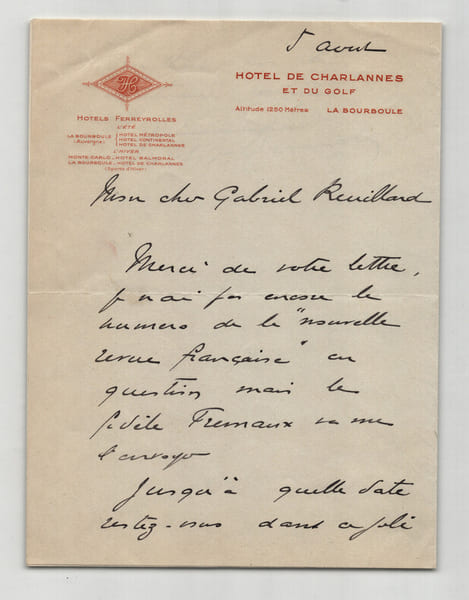 5 avout
HOTEL DE CHARLANNES
ET DU GOLF
Altitude 1250 Mètres LA BOURBOULE
FH
HOTELS FERREYROLLES
L'ÉTÉ
LA BOURBOULE (Auvergne)
HOTEL MÉTROPOLE
HOTEL CONTINENTAL
HOTEL DE CHARLANNES
L'HIVER
MONTE-CARLO - HOTEL BALMORAL
LA BOURBOULE - HOTEL DE CHARLANNES
(Sports d'hiver)
Mon cher Gabriel Reuillard
Merci de votre lettre,
je n'ai pas encore le
numero de la "nouvelle
revue française" en
question mais le
fidèle Tremaux va me
l'envoyer
Jusqu'à quelle date
restez-vous dans ce joli